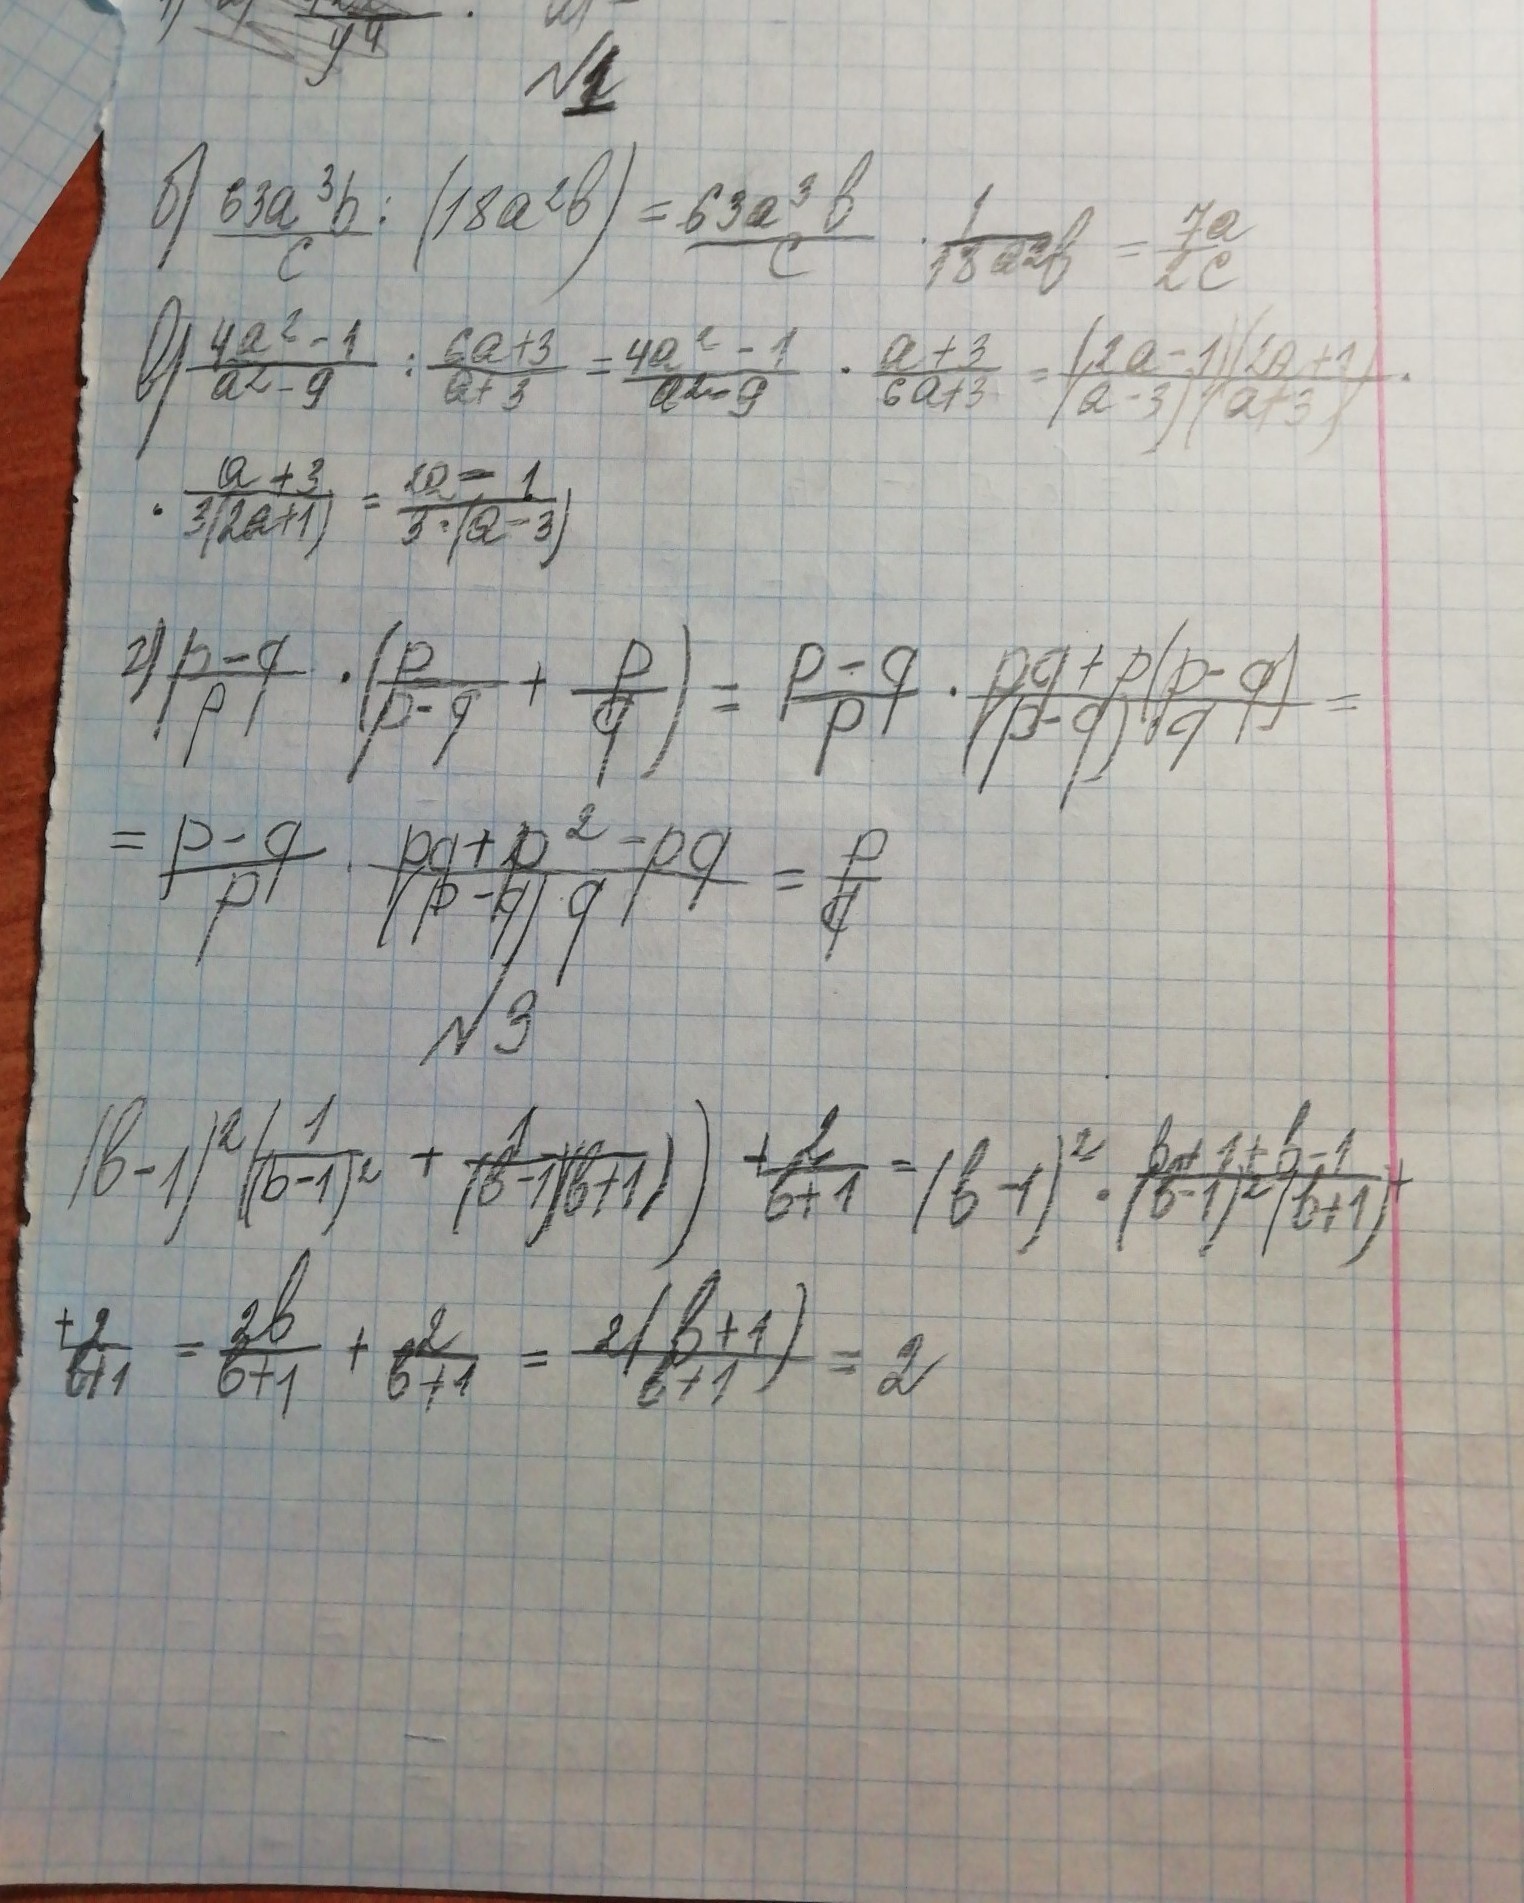 y⁴
№1
б) 63a³b/c : (18a²b) = 63a³b/c · 1/18a²b = 7a/2c
в) 4a²-1/a²-9 : 6a+3/a+3 = 4a²-1/a²-9 · a+3/6a+3 = (2a-1)(2a+1)/(a-3)(a+3) ·
· a+3/3(2a+1) = 2a-1/3·(a-3)
г) p-q/p · (p/p-q + p/q) = p-q/p · pq+p(p-q)/(p-q)·q =
= p-q/p · pq+p²-pq/(p-q)q = p/q
№3
(b-1)²(1/(b-1)² + 1/(b-1)(b+1)) + 2/b+1 = (b-1)² · b+1+b-1/(b-1)²(b+1) +
+ 2/b+1 = 2b/b+1 + 2/b+1 = 2(b+1)/b+1 = 2